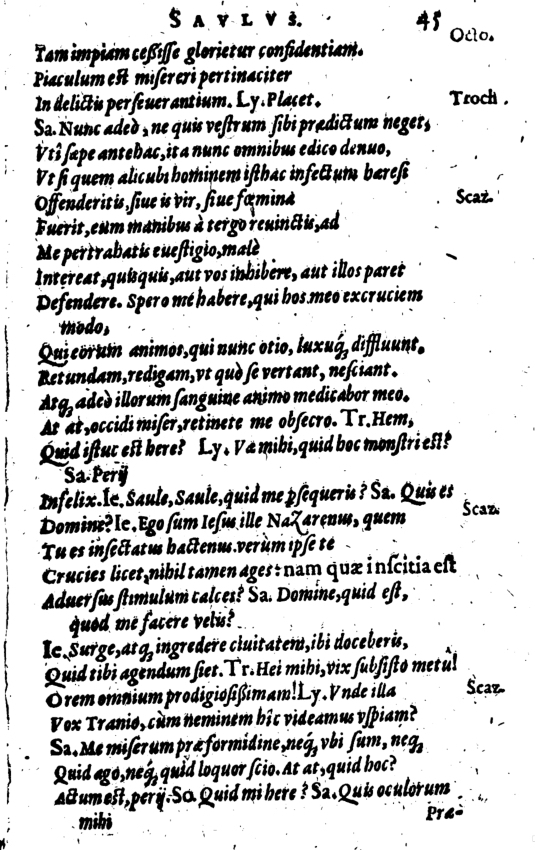 SAVLVS. 45
Octo.
Tam impiam ceßisse glorietur confidentiam.
Piaculum est misereri pertinaciter
In delictis perseuerantium. Ly. Placet. Troch.
Sa. Nunc adeò, ne quis vestrum sibi prædictum neget,
Vti sæpe antehac, ita nunc omnibus edico denuo,
Vt si quem alicubi hominem isthac infectum hæresi
Offenderitis, siue is vir, siue fœmina Scaz.
Fuerit, eum manibus à tergo reuinctis, ad
Me pertrahatis euestigio, malè
Intereat, quisquis, aut vos inhibere, aut illos paret
Defendere. Spero me habere, qui hos meo excruciem
modo,
Qui eorum animos, qui nunc otio, luxuq́; diffluunt.
Retundam, redigam, vt quò se vertant, nesciant.
Atq; adeò illorum sanguine animo medicabor meo.
At at, occidi miser, retinete me obsecro. Tr. Hem,
Quid istuc est here? Ly. Væ mihi, quid hoc monstri est?
Sa. Perij
Infelix. Ie. Saule, Saule, quid me ꝑsequeris? Sa. Quis es
Domine? Ie. Ego sum Iesus ille Nazarenus, quem Scaz.
Tu es insectatus hactenus. verùm ipse te
Crucies licet, nihil tamen ages: nam quæ inscitia est
Aduersus stimulum calces? Sa. Domine, quid est,
quod me facere velis?
Ie. Surge, atq; ingredere ciuitatem, ibi doceberis,
Quid tibi agendum siet. Tr. Hei mihi, vix subsisto metu!
O rem omnium prodigiosißimam! Ly. Vnde illa Scaz.
Vox Tranio, cùm neminem hîc videamus vspiam?
Sa. Me miserum præ formidine, neq́; vbi sum, neq́;
Quid ago, neq́; quid loquor scio. At at, quid hoc?
Actum est, perij. So. Quid mi here? Sa. Quis oculorum
mihi Præ-